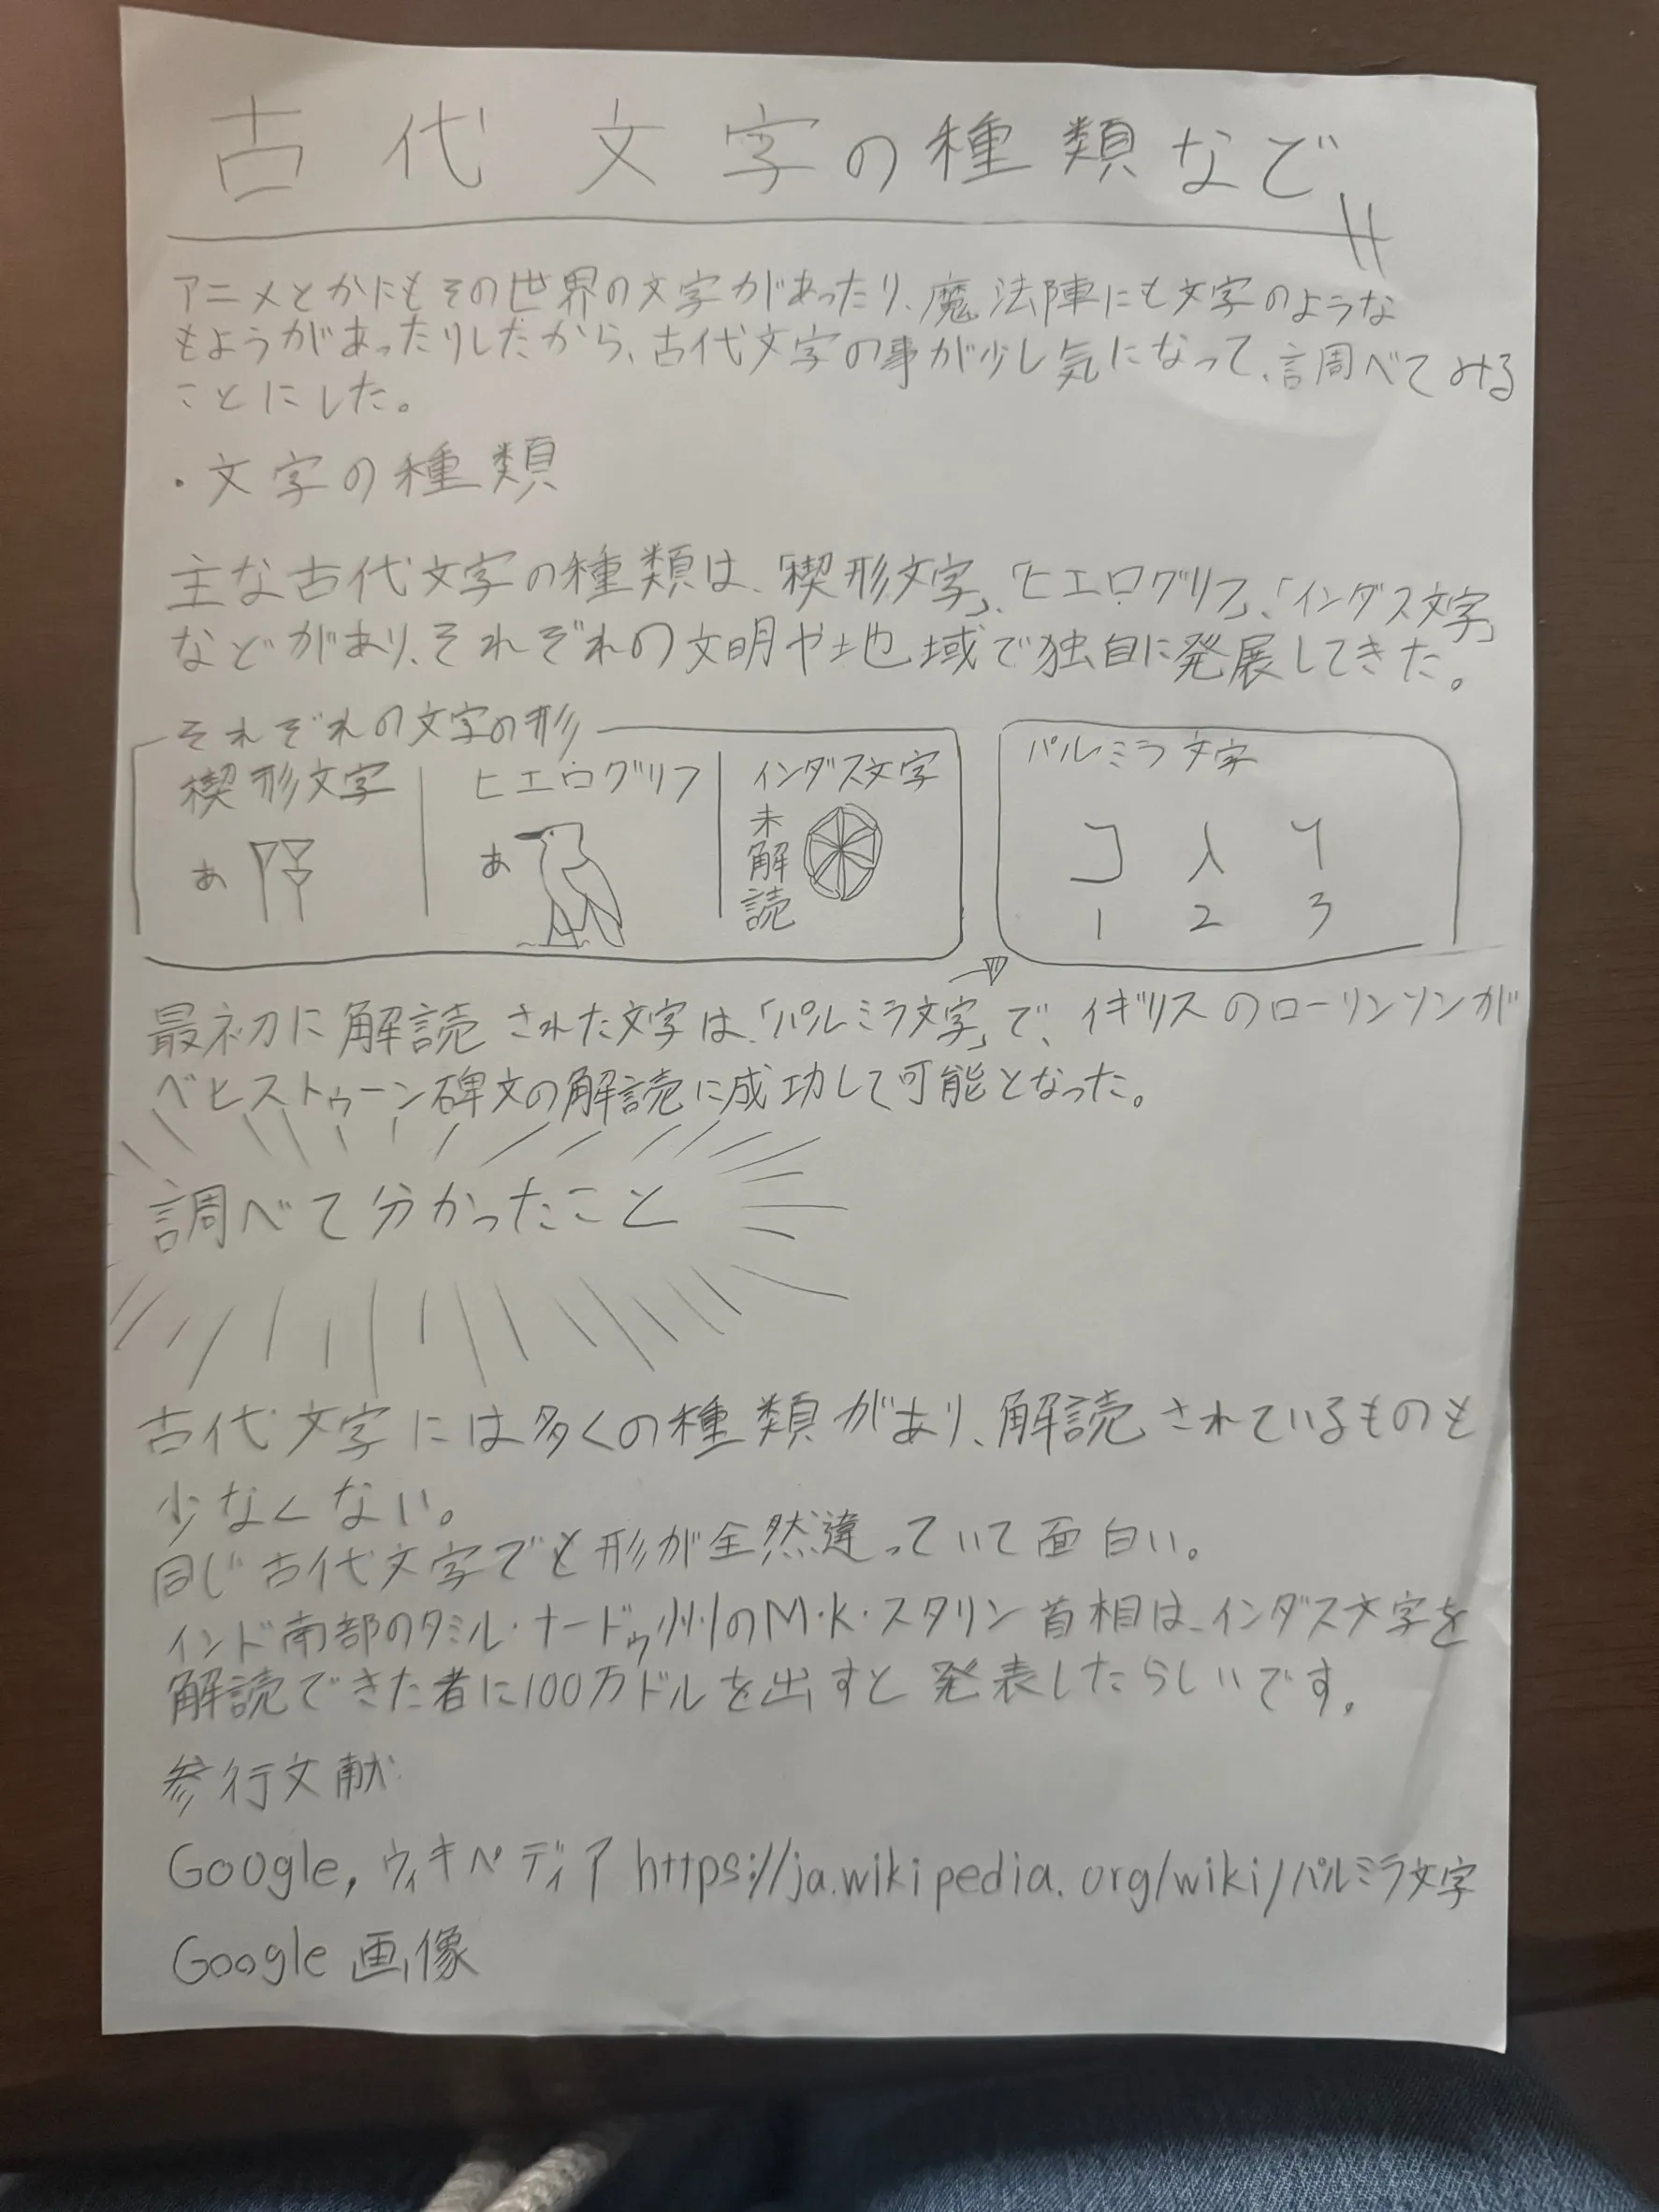 古代文字の種類など
アニメとかにもその世界の文字があったり、魔法陣にも文字のような
もようがあったりしたから、古代文字の事が少し気になって、調べてみる
ことにした。
・文字の種類
主な古代文字の種類は、「楔形文字」、「ヒエログリフ」、「インダス文字」
などがあり、それぞれの文明や地域で独自に発展してきた。
それぞれの文字の形
楔形文字
あ
ヒエログリフ
あ
インダス文字
未解読
パルミラ文字
コ 入 y
1 2 3
最初に解読された文字は、「パルミラ文字」で、イギリスのローリンソンが
ベヒストゥーン碑文の解読に成功して可能となった。
調べて分かったこと
古代文字には多くの種類があり、解読されているものも
少なくない。
同じ古代文字でと形が全然違っていて面白い。
インド南部のタミル・ナードゥ州のM・K・スタリン首相は、インダス文字を
解読できた者に100万ドルを出すと発表したらしいです。
参行文献
Google, ウィキペディア https://ja.wikipedia.org/wiki/パルミラ文字
Google 画像